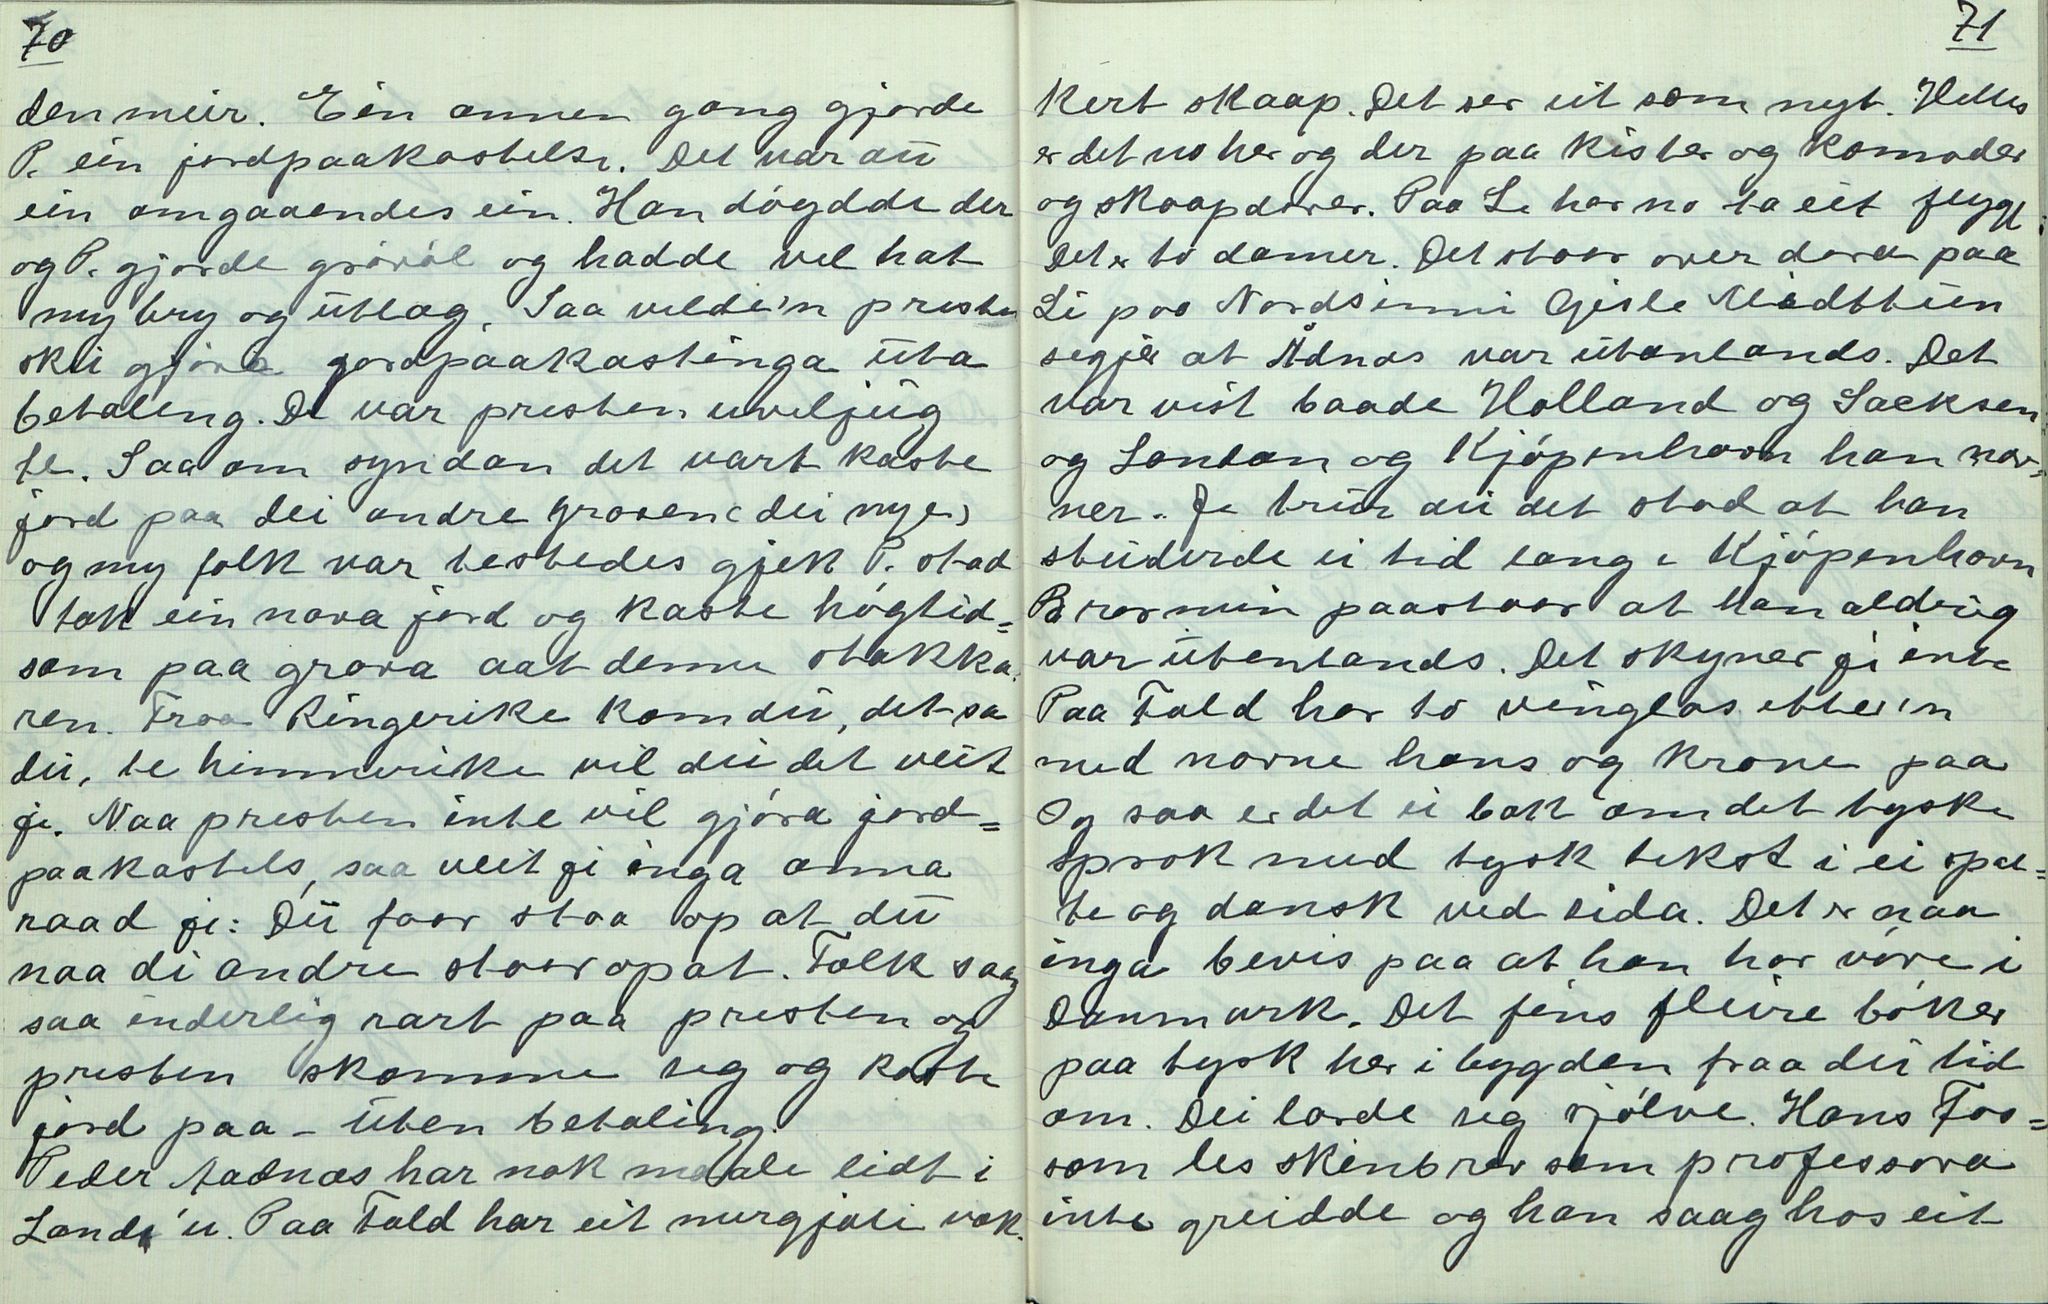 70
den meir. Ein annen gong gjorde
P. ein jordpaakastelse. Det var au
ein omgaaendes ein. Han døgdde der
og P. gjorde gravøl og hadde vel hat
my bry og utlag. Saa vilde'n presten
skui gjøra jordpaakastinga uta
betaling. De var presten uviljug
te. Saa om syndan det vart kaste
jord paa dei andre graven (dei nye)
og my folk var testedes gjek P. stad
tok ein nova jord og kaste høgtid=
som paa grova aat denne stakka
ren. Fraa Ringerike kom du, det sa
du, te himmerike vil du det veit
je. Naa presten inte vil gjøra jord=
paakastels, saa veit je inga anna
raad je: Du faar staa op at du
naa di andre staar opat. Folk saag
saa inderlig rart paa presten og
presten skamme seg og kaste
jord paa - uten betaling.
Peder Aadnæs har nok maale lidt i
Landi'u. Paa Fald har eit nurgjoli vak.
71
kert skaap. Det ser ut som nyt. Helles
er det no her og der paa kister og komoder
og skaapdører. Paa Li har no ta eit flygt
Det er to damer. Det staar over døra paa
Li paa Nordsinni Gisle Midttun
segjer at Ådnæs var utanlands. Det
var vist baade Holland og Sacksen
og London og Kjøpenhavn han nav=
ner. Je trur au det stod at han
studerde ei tid lang i Kjøpenhavn
Bror min paastaar at han aldrig
var utenlands. Det skyner je inte
Paa Fald har to vinglas etter'n
med navne hans og krone paa
Og saa er det ei bok om det tyske
sprok med tysk tekst i ei spal=
te og dansk ved sida. Det er naa
inga bevis paa at han har vøre i
Danmark. Det fins fleire bøker
paa tysk her i bygden fraa dei tid
om. Dei lærde seg sjølve. Hans Fos=
som les skinbrev som professora
inte greidde og han saag hos eit